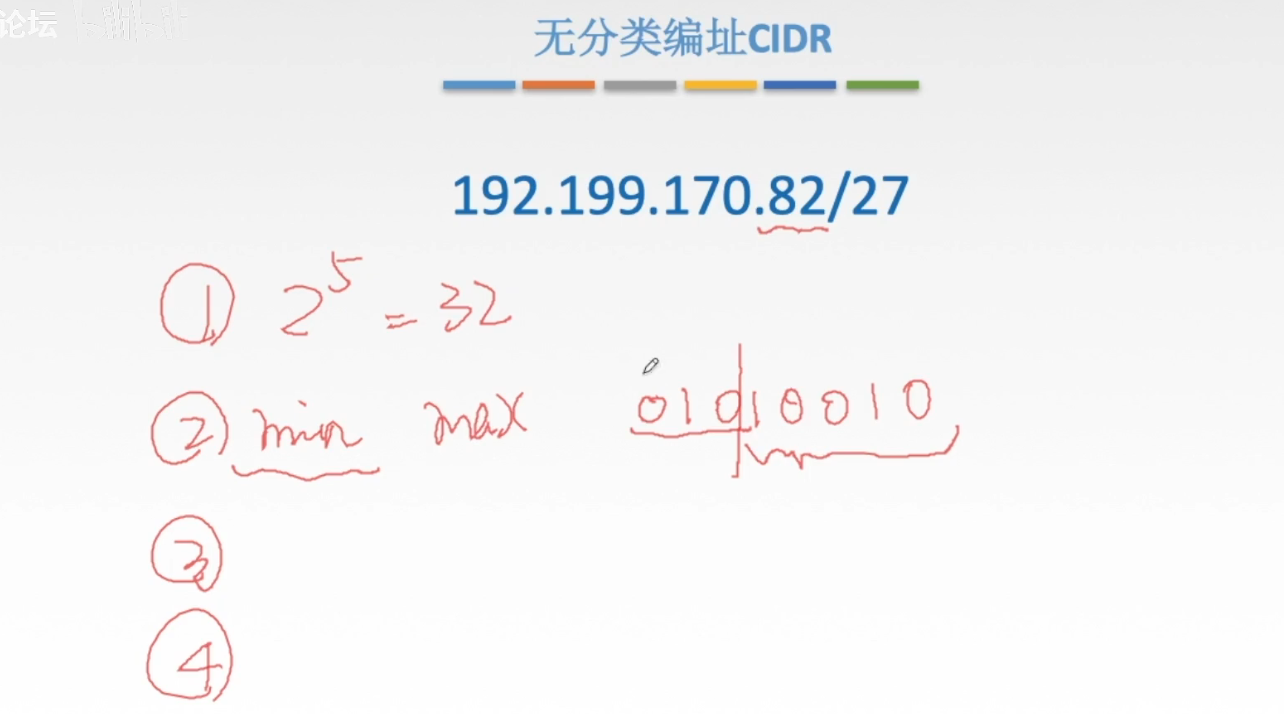 论坛 bilibili
无分类编址CIDR
192.199.170.82/27
① 2^5 = 32
② min max 01010010
③
④